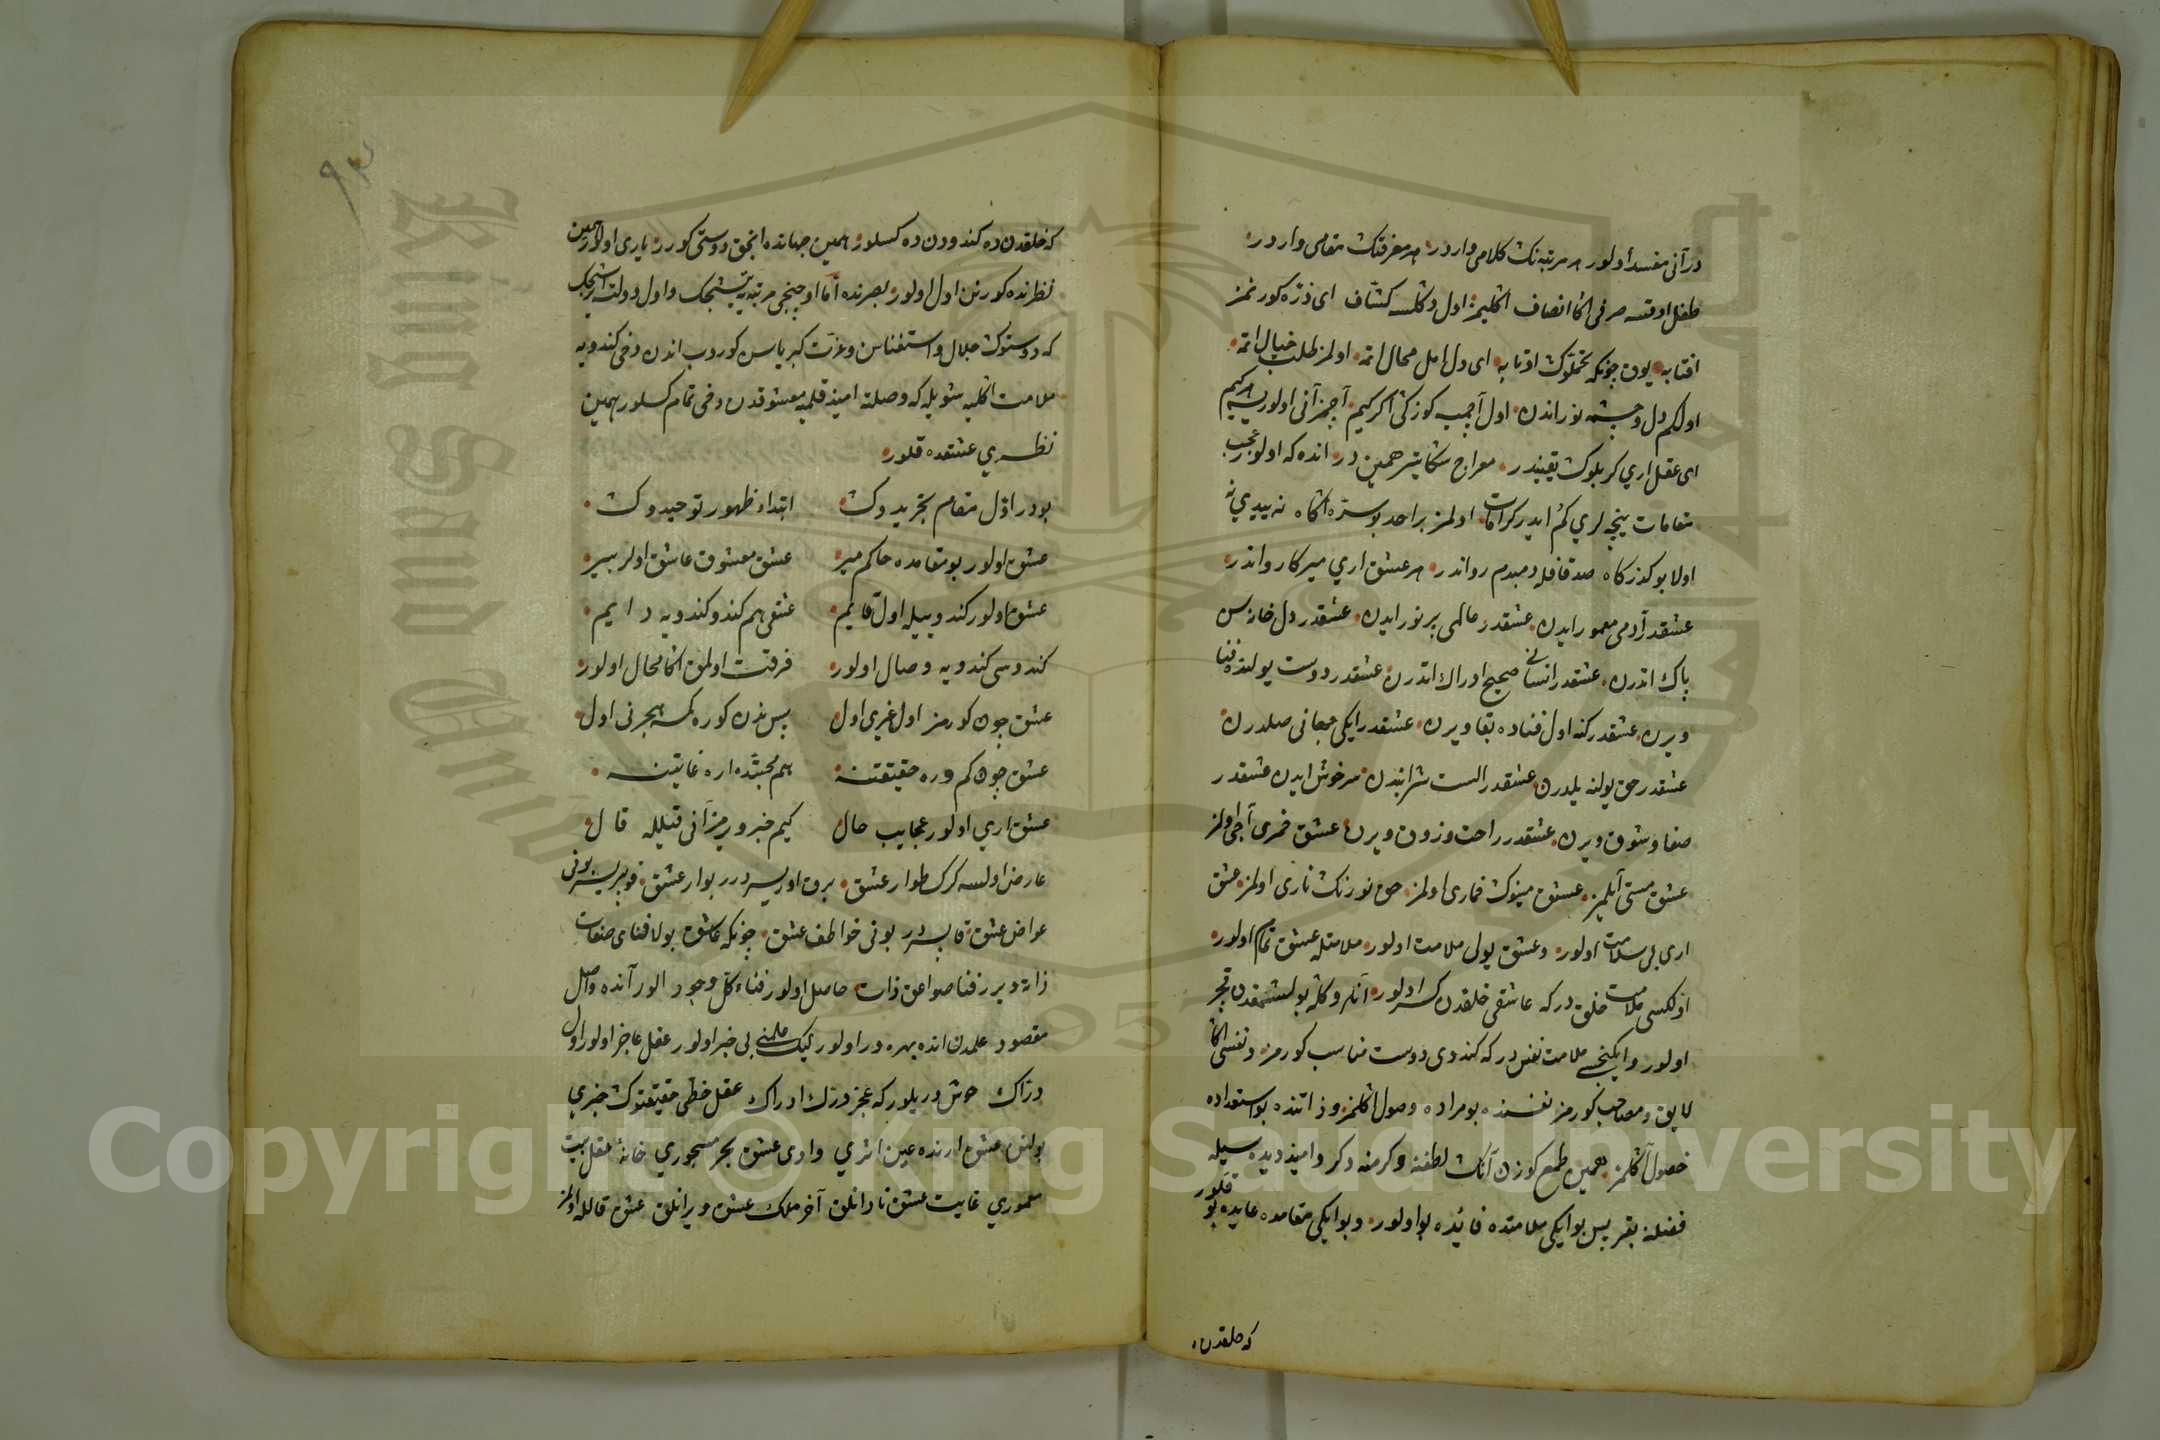 در آنی مفسد اولور هر مرتبه نك كلامی واردر هر معرفتك مقامی واردر
طفل اوقسه صرفی اكا انصاف اكلیمز اول دكلسه كشاف ای ذرّه كورنمز
افتابه یون چونكه تحملوك اوتابه ای دل امل محال اتمه اولمز طلب خیال اتمه
اولكم دل و چشمه نور اندن اول آجیب كوزكی اكر كیم آچمز آنی اولور
ای عقل اری كر بلوك یقیندر معراج همین در انده كه اولور عجب
مقامات نیچه لری كم ایدر كرامات اولمز براحد بو سرّه اكاه نه
اولا بو كذركاه صد قافله دمبدم رواندر هر عشق اری میر كارواندر
عشقدر آدمی معمور ایدن عشقدر عالمی پر نور ایدن عشقدر دل خانه سن
پاك اتدرن عشقدر انسانی صحیح ادراك اتدرن عشقدر دوست یولنده فنا
ویرن عشقدر كنه اول فناده بقا ویرن عشقدر ایكی جهانی صلدرن
عشقدر حق یولنه یلدرن عشقدر الست شرابندن سرخوش ایدن عشقدر
صفا و شوق ویرن عشقدر راحت و ذوق ویرن عشق خمری آجی اولمز
عشق مستی آیلمز عشق مینوك خماری اولمز حق نورنك ناری اولمز عشق
اری بی سلامت اولور و عشق یول ملامت اولور ملامتله عشق تمام اولور
اولكسی ملامت خلق در كه عاشقی خلقدن كسر اولور
اولور و ایكنجسی ملامت نفس در كه كندی دوست مناسب كورمز و نفسی اكا
لایق و مصاحب كورمز نفسنده بو مراده وصول اكلمز و ذاتنده بو استعداده
حصول اكلمز همین طمع كوزن آنك لطفنه و كرمنه دكر و امید دیده سیله
فضلنه بقر پس بو ایكی ملامتده فائده بو اولور و بو ایكی مقامده عایده بو قلور
كه خلقدن
۹۳
كه خلقدن ده كندودن ده كسلور همین جهانده انجق دوستی كورر یاری اولور همین
نظرنده كورنن اول اولور بصرنده امّا اوچنجی مرتبه یه یتیشیجك و اول دولته ایریشیجك
كه دوستوك جلال و استغناسن و عزّت كبریاسن كوروب اندن دخی كندویه
ملامت اكلیه شویله كه وصلته امید قلمیه معشوقدن دخی تمام كسلور همین
نظری عشقده قلور
بودر اوّل مقام تجریدوك ابتداء ظهور توحیدوك
عشق اولور بو مقامده حاكم میر عشق معشوق عاشق اولر بیر
عشق اولور كندوییله اول قایم عشقی هم كندو كندویه دایم
كندوسی كندویه وصال اولور فرقت اولمق اكا محال اولور
عشق چون كورمز اول غیری اول پس ندن كوره كمسه هجرنی اول
عشق چون كم وره حقیقتنه هم محبّتده اره غایتنه
عشق اری اولور عجایب حال كیم خبر ویرمز آنی قیلله قال
عارض اولسه كرك اطوار عشق برق اوریسر در بوار عشق قوپریسر بونی
عواض عشق قاپیسردر بونی خواطف عشق چونكه عاشق بولا فنای صفات
ذاته ویرر فنا صواعق ذات حاصل اولور فناء كل وجود الور آنده واصل
مقصود علمدن انده بهره ور اولور لیك علمنی بی خبر اولور عقل عاجز اولور اول
درّاك خوش دریلور كه عجز درك ادراك عقل خطی حقیقتوك خبری
بولنن عشق ارنده عین اثری وادی عشق بحر مسجوری خانهٔ عقل بیت
معموری غایت عشق نادانلق آخر ملك عشق ویرانلق عشق قالله اولمز